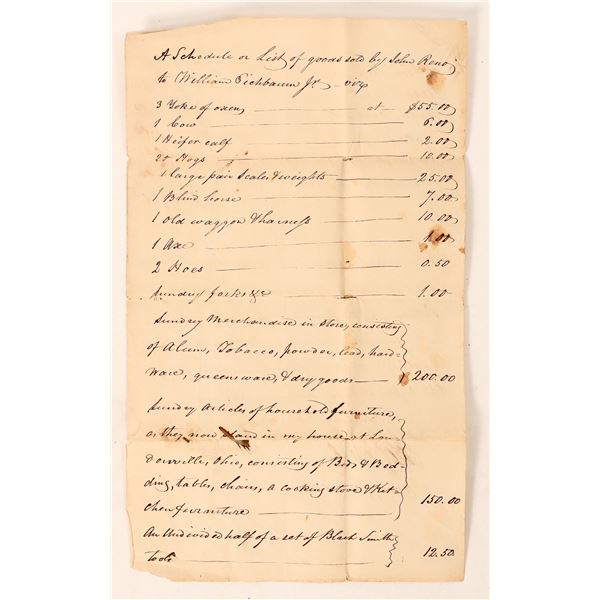 A Schedule or List of goods sold by John Reno
to William Eichbaum Jr. viz
3 Yoke of oxen at $55.00
1 Cow 6.00
1 Heifer calf 2.00
20 Hogs 10.00
1 large pair Scales & weights 25.00
1 Blind horse 7.00
1 old waggon & harness 10.00
1 Axe 1.00
2 Hoes 0.50
Sundry forks &c 1.00
Sundrey Merchandise in Store, consisting
of Alum, Tobacco, powder, lead, hard-
ware, queensware, & dry goods 200.00
Sundry Articles of household furniture,
as they now stand in my house at Lou-
donville, Ohio, consisting of Beds & Bed-
ding, tables, chairs, a cooking stove & Kit-
chen furniture 150.00
An Undivided half of a set of Black Smith
tools 12.50